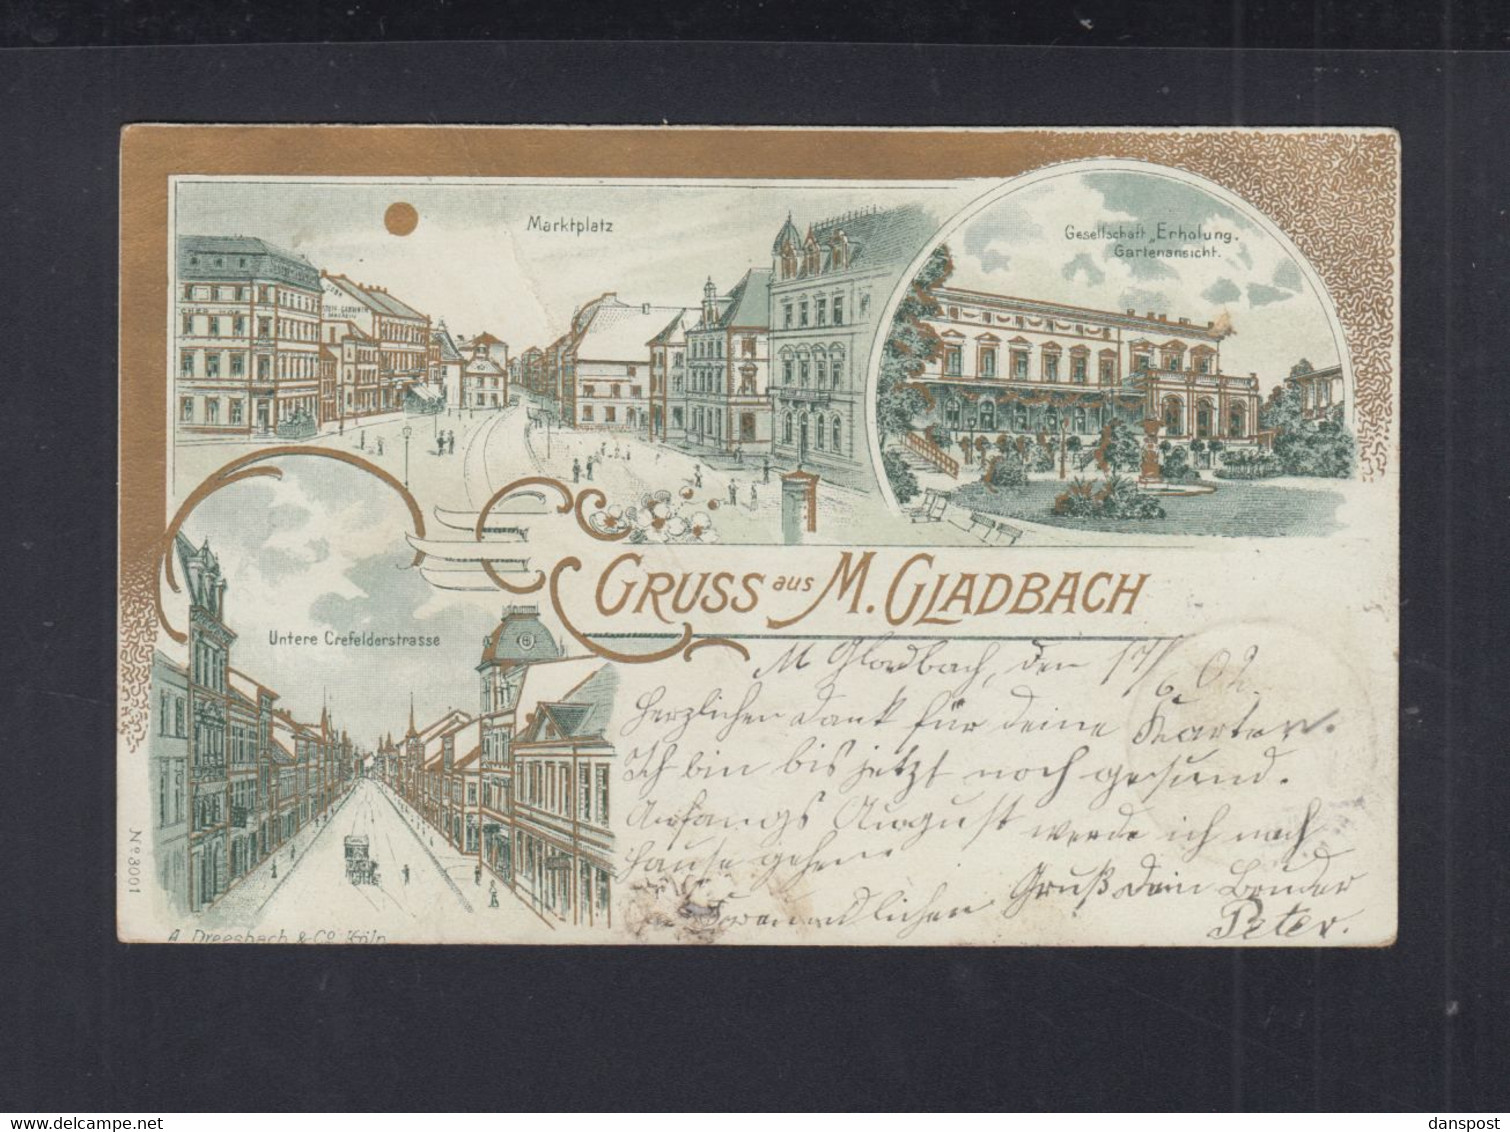 Marktplatz
Gesellschaft „Erholung.
Gartenansicht.
Untere Crefelderstrasse
GRUSS aus M. GLADBACH
M Gladbach, den 17/6 02.
Herzlichen Dank für deine Karten.
Ich bin bis jetzt noch gesund.
Anfangs August werde ich nach
Hause gehen
Gruß Dein Bruder
Peter.
No 3001
A. Dreesbach & Co Köln
danspost